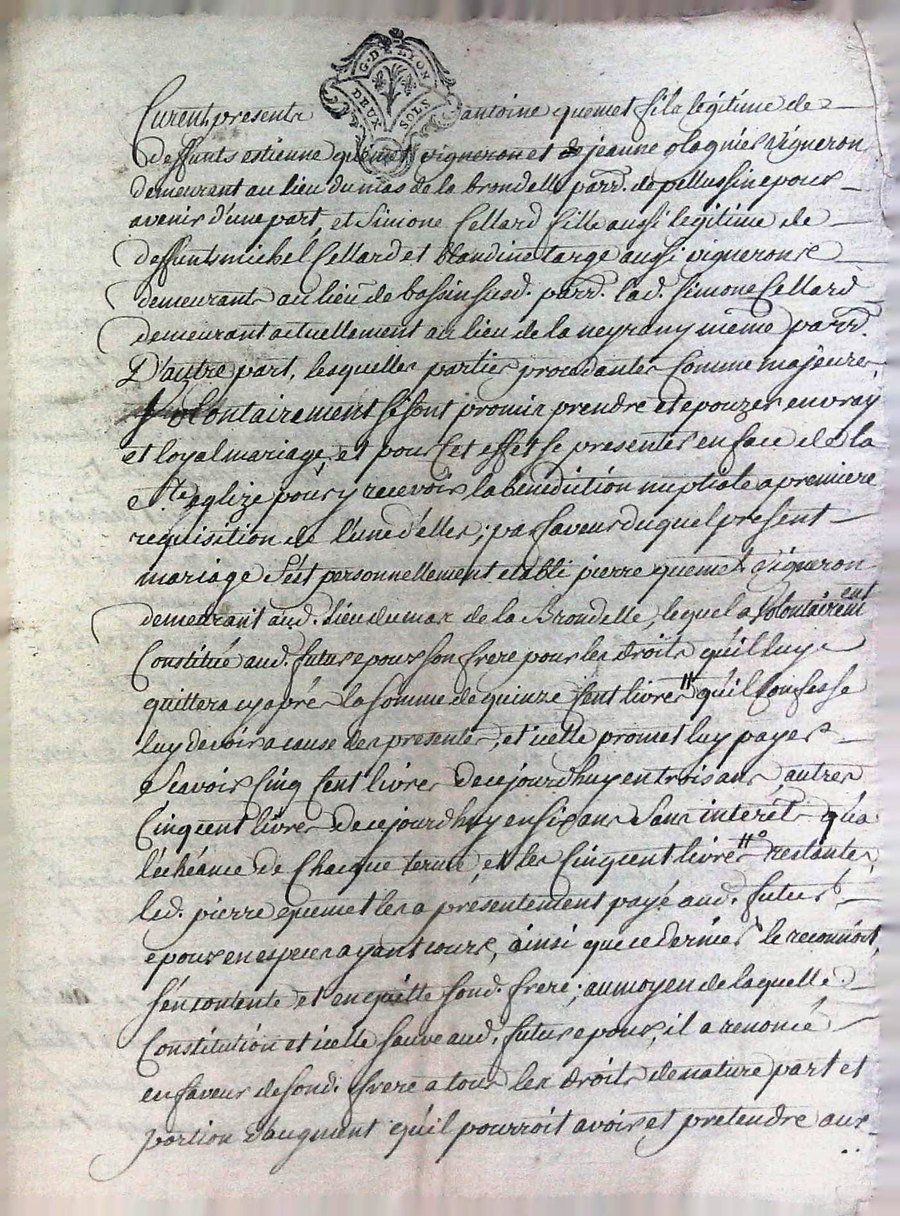 G. DE LION
DEUX SOLS
Furent presents antoine quemet fils legitime de
deffunts estienne quemet vigneron et de jeanne glagnier vigneron
demeurant au lieu du mas de la brondelle parr. de pellussin epoux
avenir d'une part, et Simone Cellard fille aussi legitime de
deffunts michel Cellard et blandine large aussi vignerons
demeurants au lieu de bassin susd. parr. lad. Simone Cellard
demeurant actuellement au lieu de la neyrany même parr.
D'autre part, lesquelles parties procedantes Comme majeures,
Volontairement se sont promis prendre et epouzer en vray
et loyal mariage, et pour Cet effet se presenter en face de la
Ste. eglize pour y recevoir la bénédiction nuptiale a premiere
requisition de l'une d'elles; par faveur duquel present
mariage s'ést personnellement etabli pierre quemet vigneron
demeurant aud. Lieu du mas de la Brondelle, lequel a volontairement
Constitué aud. futur epoux son frere pour les droits qu'il luy
quittera cy apré la somme de quinze Cent livres tt qu'il Confesse
luy devoir a cause des presentes, et icelle promet luy payer
Scavoir Cinq Cent livres de ce jourdhuy en trois ans, autres
Cinqcent livres de ce jourdhuy en six ans Sans interêts qu'a
l'échéance de Chaque terme, et les Cinqcent livres tt restantes,
led. pierre quemet les a presentement payé aud. futur
epoux en especes ayant cours, ainsi que ce dernier le reconnoit,
s'en contente et en quitte sond. frere; au moyen de laquelle
Constitution et icelle sauve aud. futur epoux, il a renoncé
en faveur de sond. frere a tous les droits de nature part et
portion d'augment qu'il pourroit avoir et pretendre aux